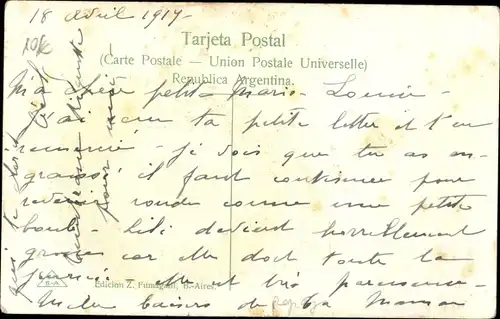 18 Avril 1917-
10€
Tarjeta Postal
(Carte Postale — Union Postale Universelle)
Republica Argentina.
Ma chère petite Marie-Louise-
j'ai reçu ta petite lettre et t'en
remercie - je vois que tu as en-
graissé il faut continuer pour
revenir ronde comme une petite
boule - Lili devient horriblement
grosse car elle doit toute la
journée - elle est très paresseuse-
Edicion Z. Fumagalli, B. Aires.
baisers de Maman
pour moi